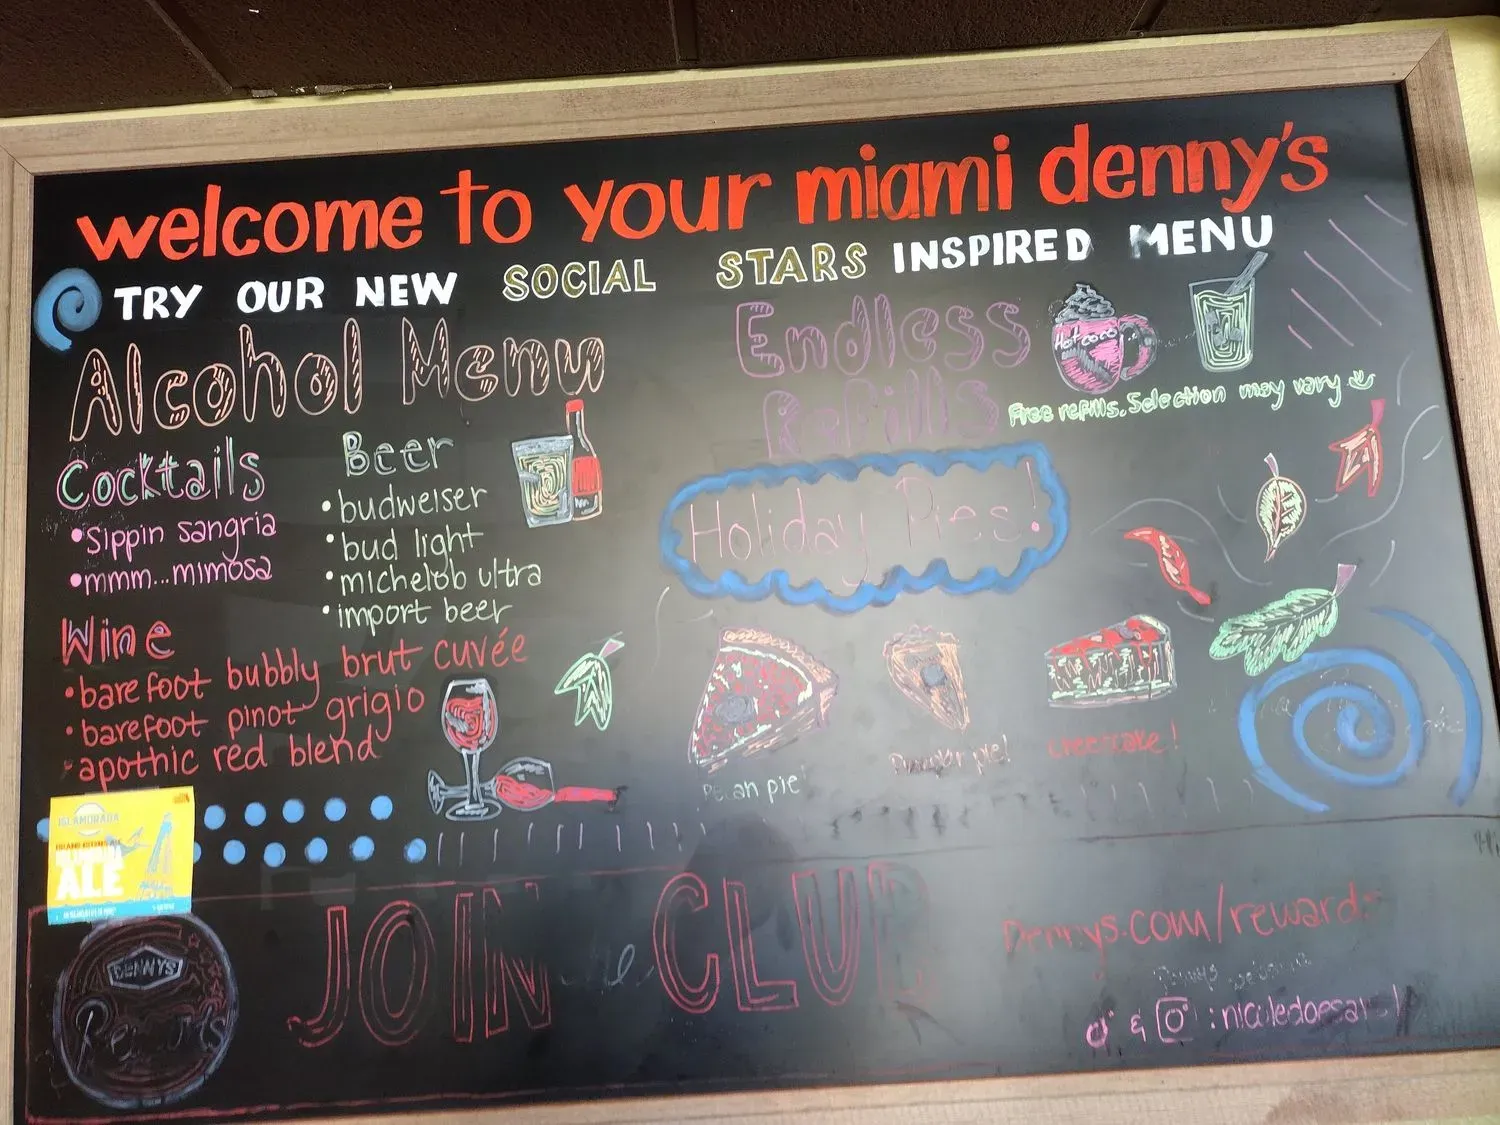 welcome to your miami denny's
TRY OUR NEW SOCIAL STARS INSPIRED MENU
Alcohol Menu
Cocktails
•sippin sangria
•mmm...mimosa
Beer
•budweiser
•bud light
•michelob ultra
•import beer
Wine
•barefoot bubbly brut cuvée
•barefoot pinot grigio
•apothic red blend
Endless
Refills
Hot coco
Free refills. Selection may vary
Holiday Pies!
Pecan pie!
Pumpkin pie!
cheesecake!
ISLAMORADA
ALE
DENNYS
Rewards
JOIN the CLUB
Dennys.com/rewards
&